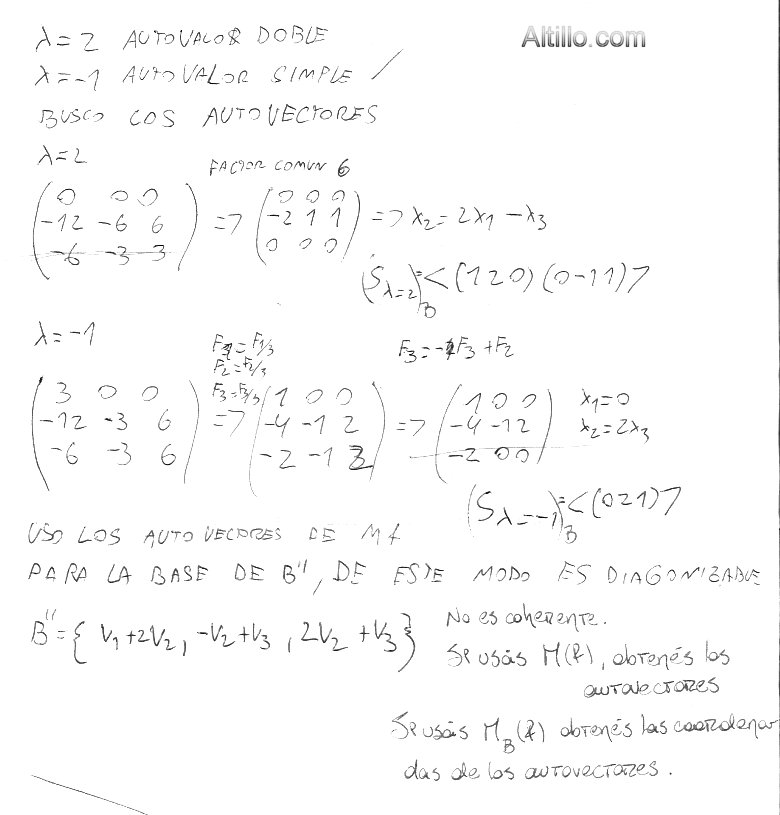 Altillo.com
λ=2 AUTOVALOR DOBLE
λ=-1 AUTOVALOR SIMPLE /
BUSCO LOS AUTOVECTORES
λ=2
FACTOR COMUN 6
( 0 0 0 ) => ( 0 0 0 ) => x₂ = 2x₁ - x₃
( -12 -6 6 ) ( -2 1 1 )
( -6 -3 3 ) ( 0 0 0 )
(S λ=2)B = <(1 2 0) (0 -1 1)>
λ=-1
F₁ = F₁/3
F₂ = F₂/3
F₃ = F₃/3
F₃ = -F₃ + F₂
( 3 0 0 ) => ( 1 0 0 ) => ( 1 0 0 ) x₁=0
( -12 -3 6 ) ( -4 -1 2 ) ( -4 -1 2 ) x₂=2x₃
( -6 -3 6 ) ( -2 -1 2 ) ( -2 0 0 )
(S λ=-1)B = <(0 2 1)>
USO LOS AUTOVECTORES DE Mf
PARA LA BASE DE B'', DE ESTE MODO ES DIAGONIZABLE
B'' = { V₁+2V₂, -V₂+V₃, 2V₂+V₃ }
No es coherente.
Si usás M(f), obtenés los
autovectores
Si usás M_B(f) obtenés las coordena
das de los autovectores.